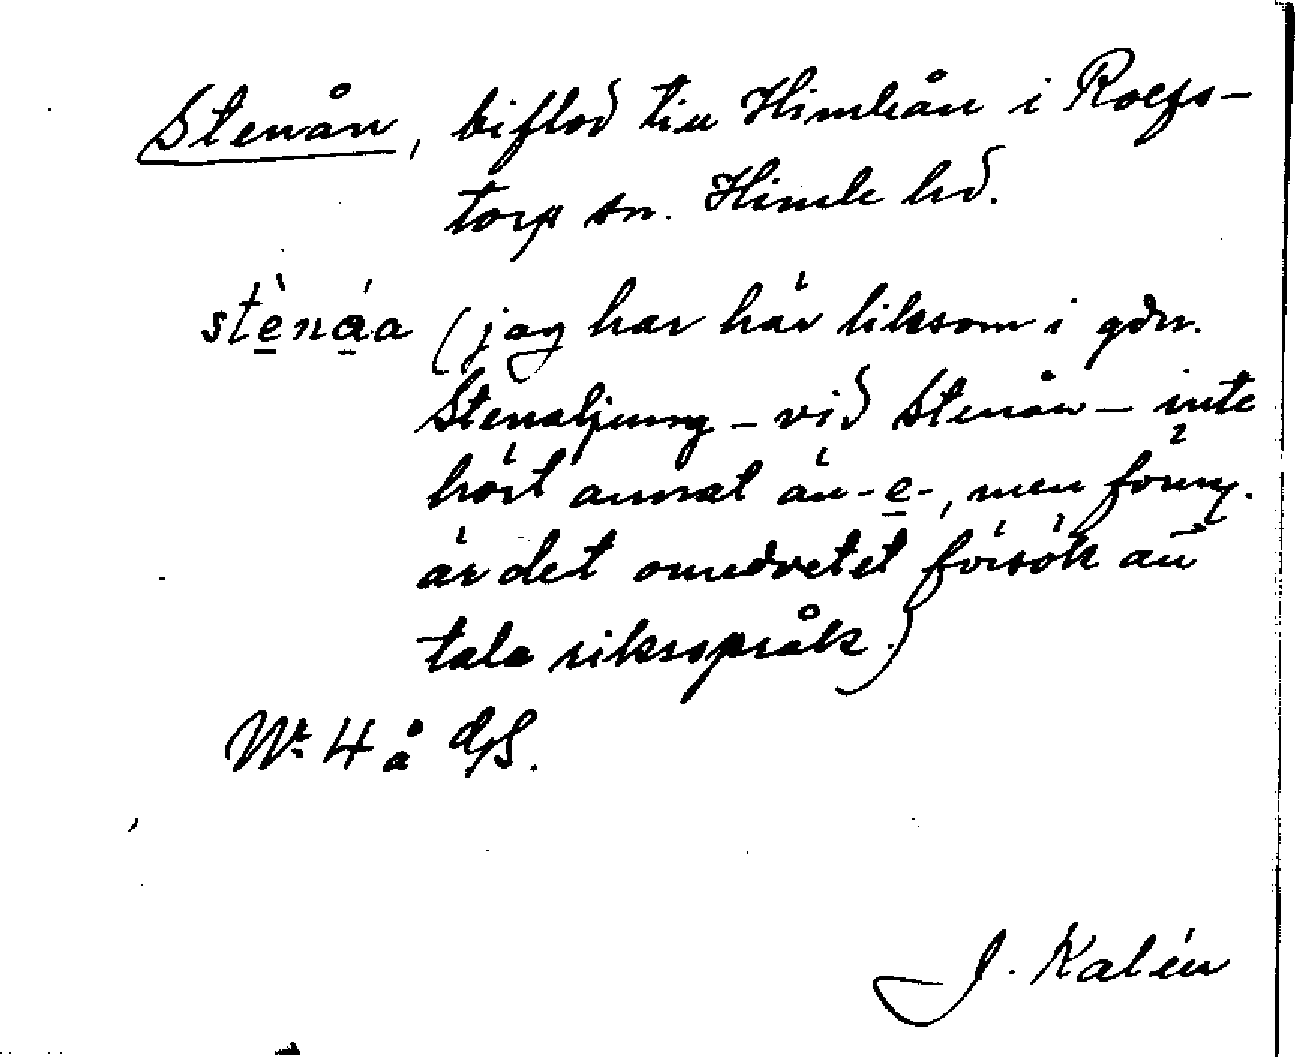 Stenån, biflod till Himleån i Rolfs-
torp sn. Himle hd.
stènáa (jag har här liksom i gdn.
Stenaljung – vid Stenån – inte
hört annat än -e-, men
är det omedvetet försök att
tala riksspråk.)
4 å
J. Kalén